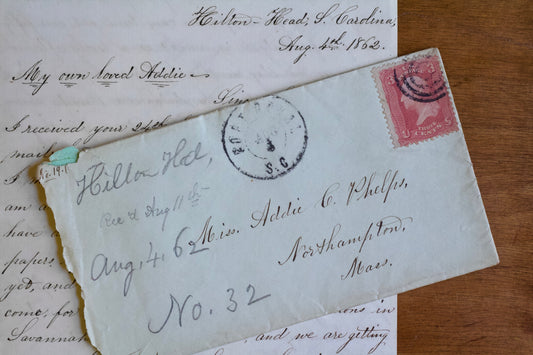 Hilton-Head, S. Carolina,
Aug. 4th. 1862.
My own loved Addie
I received your 24th
am a
have a
papers.
yet, and
come, for
Savannah
and we are getting
PORT ROYAL
S.C.
3 3
U THREE S
CENTS
Hilton Hd,
Rec'd Aug 11th
Aug. 4. 62
No. 32
Miss. Addie C. Phelps,
Northampton,
Mass.